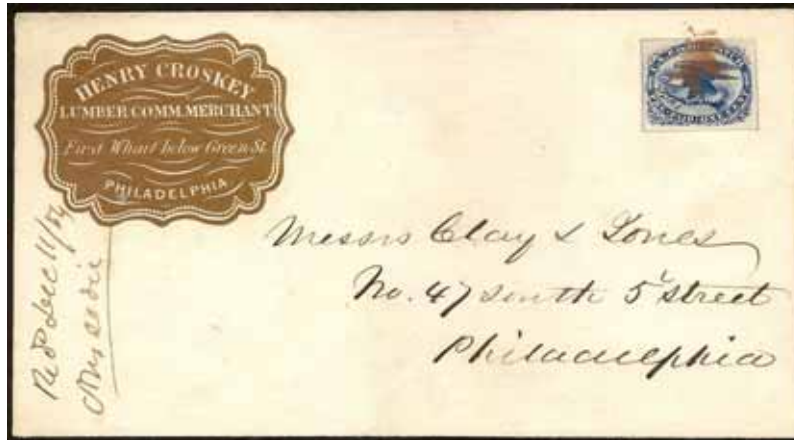 HENRY CROSKEY
LUMBER COMM. MERCHANT
First Wharf below Green St.
PHILADELPHIA
Messrs Clay & Jones
No. 47 South 5th Street
Philadelphia
Recd Dec 11/54